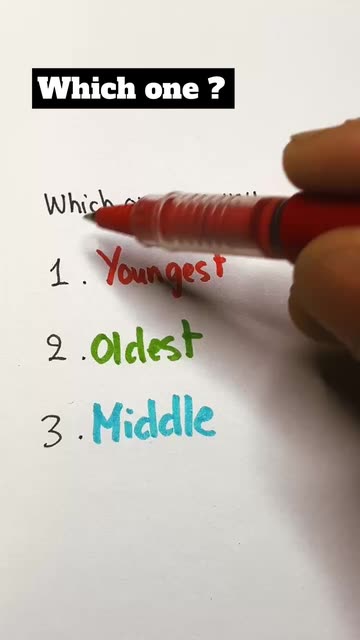 Which one ?
Which
1. Youngest
2. Oldest
3. Middle